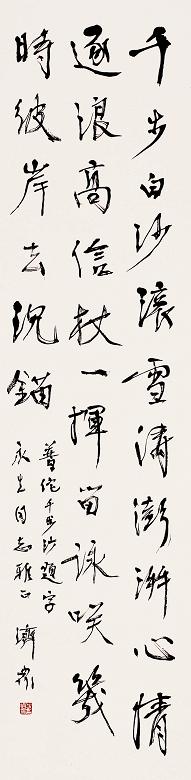 千步白沙滚雪涛澎湃心情
逐浪高信杖一挥留咏咲几
时彼岸去沉锚
普陀千步沙题字
永生同志雅正